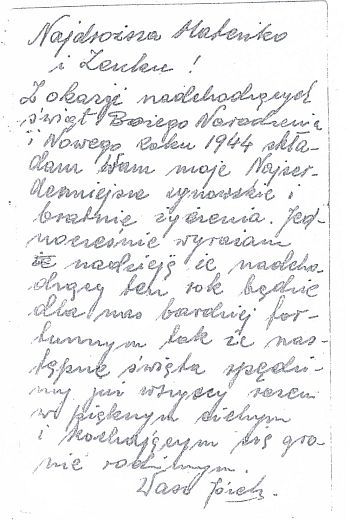 Najdroższa Mateńko
i Zenku!
Z okazji nadchodzących
świąt Bożego Narodzenia
i Nowego Roku 1944 skła-
dam Wam moje Najser-
deczniejsze synowskie i
bratnie życzenia. Jed-
nocześnie wyrażam
nadzieję że nadcho-
dzący ten rok będzie
dla nas bardziej for-
tunnym tak że nas-
tępne święta spędzi-
my już wszyscy razem
w pięknym cichym
i kochającym się gro-
nie rodzinnym.
Wasz Józek.